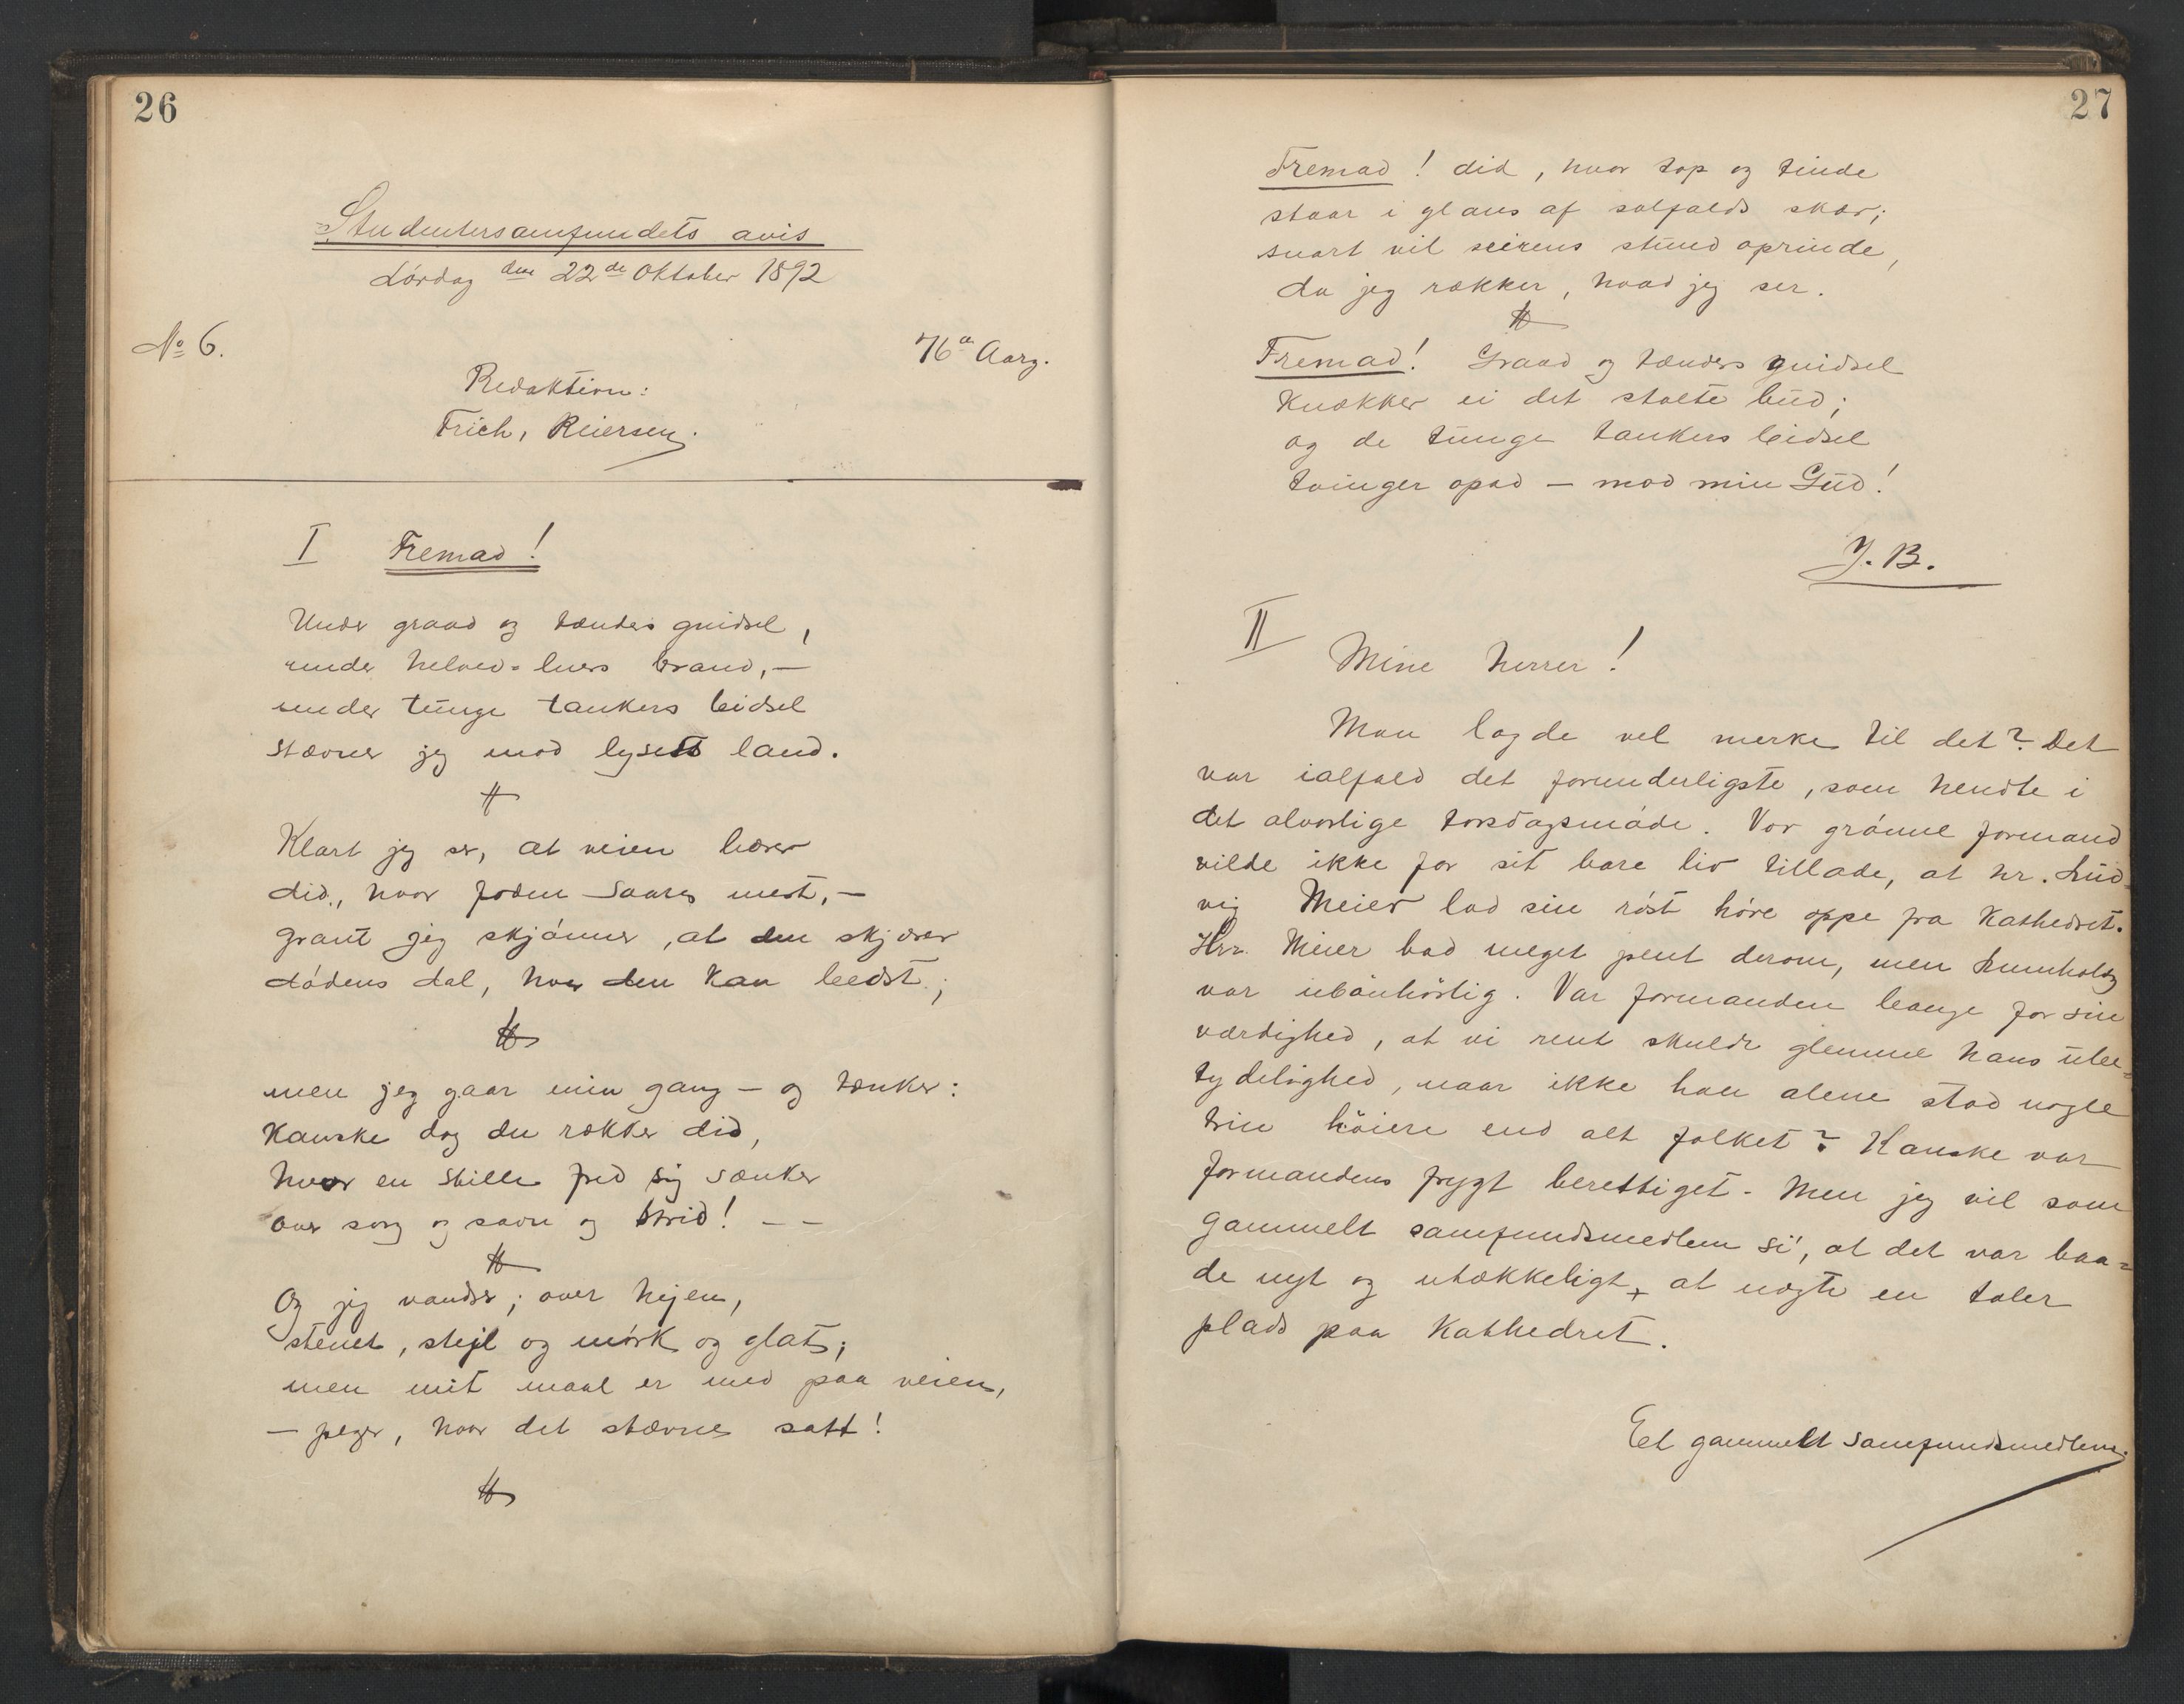 26
Studentersamfundets avis
Lørdag den 22de Oktober 1892
No 6.
76a Aarg.
Redaktion:
Frich, Reiersen.
I Fremad!
Under graad og tænders gnidsel,
under helved-luers brand, —
under tunge tankers bidsel
stævner jeg mod lysets land.
Klart jeg ser, at veien bærer
did, hvor foden saares mest, —
grant jeg skjønner, at den skjærer
dødens dal, hvor den kan bedst;
men jeg gaar min gang — og tænker:
Kanske dog du rækker did,
hvor en stille fred sig sænker
over sorg og savn og strid! — —
Og jeg vandrer; over hejen,
stenet, stejl og mørk og glat;
men mit maal er med paa veien,
— peger, hvor det stævne satt!
27
Fremad! did, hvor top og tinde
staar i glans af solfalds skær;
snart vil seirens stund oprinde,
da jeg rækker, hvad jeg ser.
Fremad! Graad og tænders gnidsel
knækker ei det stolte bud;
og de tunge tankers bidsel
tvinger opad — mod min Gud!
J. B.
II
Mine herrer!
Man lagde vel merke til det? Det
var ialfald det forunderligste, som hendte i
det alvorlige torsdagsmøde. Vor grønne formand
vilde ikke for sit bare liv tillade, at hr. Lud-
vig Meier lod sin røst høre oppe fra Kathedret.
Hr. Meier bad meget pent derom, men Lumholtz
var ubønhørlig. Var formanden bange for sin
værdighed, at vi rent skulde glemme hans ube-
tydelighed, naar ikke han alene stod nogle
trin høiere end alt folket? Kanske var
formandens frygt berettiget. Men jeg vil som
gammelt samfundsmedlem si, at det var baa-
de nyt og utækkeligt, at nægte en taler
plads paa Kathedret.
Et gammelt samfundsmedlem.